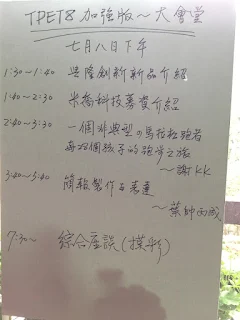 TPET8 加強版~大會堂
七月八日下午
1:30~1:40 興隆創新新品介紹
1:40~2:30 米喬科技募資介紹
2:40~3:30 一個非典型の馬拉松跑者
每個孩子的跑步之旅
~謝KK
3:40~5:40 簡報製作与表達
~葉帥西威
7:30~ 綜合座談(模彩)